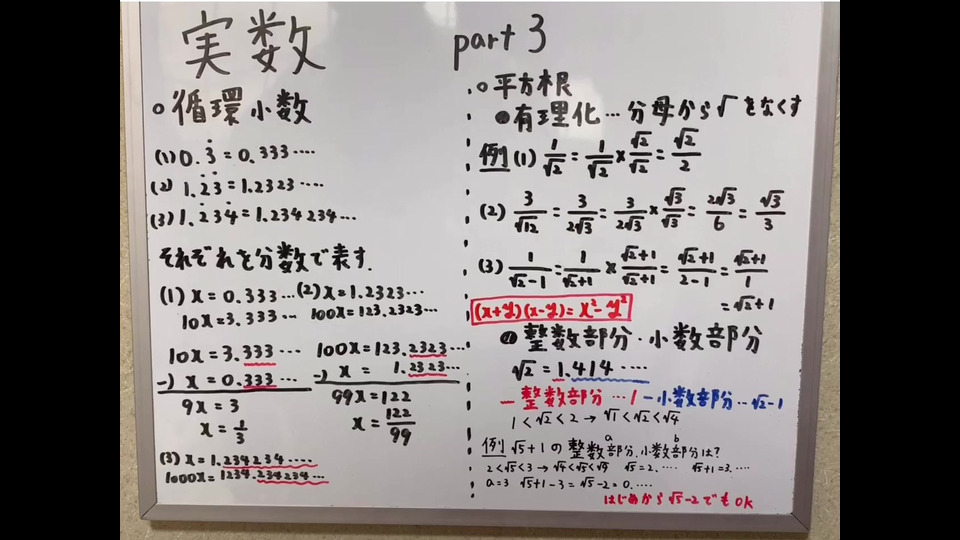 実数 part 3
○循環小数
(1) 0.3̇ = 0.333····
(2) 1.2̇3̇ = 1.2323····
(3) 1.2̇34̇ = 1.234234···
それぞれを分数で表す.
(1) x = 0.333··· (2) x = 1.2323···
10x = 3.333··· 100x = 123.2323···
10x = 3.333··· 100x = 123.2323···
-) x = 0.333··· -) x = 1.2323···
9x = 3 99x = 122
x = 1/3 x = 122/99
(3) x = 1.234234····
1000x = 1234.234234···
○平方根
●有理化···分母から√をなくす
例 (1) 1/√2 = 1/√2 × √2/√2 = √2/2
(2) 3/√12 = 3/2√3 = 3/2√3 × √3/√3 = 2√3/6 = √3/3
(3) 1/√2-1 = 1/√2+1 × √2+1/√2+1 = √2+1/2-1 = √2+1/1
= √2+1
(x+y)(x-y) = x²-y²
●整数部分・小数部分
√2 = 1.414····
-整数部分···1 -小数部分···√2-1
1<√2<2 → √1<√2<√4
例 √5+1の整数部分a.小数部分bは?
2<√5<3 → √4<√5<√9 √5=2.···· √5+1=3.····
a=3 √5+1-3=√5-2=0.····
はじめから√5-2でもOK